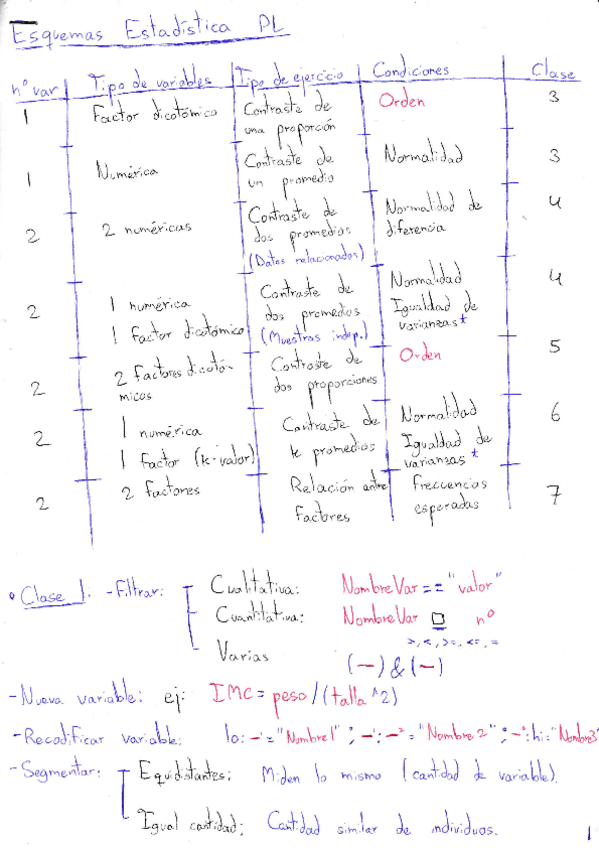 Esquemas Estadística PL
nº var | Tipo de variables | Tipo de ejercicio | Condiciones | Clase
1 | Factor dicotómico | Contraste de una proporción | Orden | 3
1 | Numérica | Contraste de un promedio | Normalidad | 3
2 | 2 numéricas | Contraste de dos promedios (Datos relacionados) | Normalidad de diferencia | 4
2 | 1 numérica 1 factor dicotómico | Contraste de dos promedios (Muestras indep.) | Normalidad Igualdad de varianzas* | 4
2 | 2 factores dicotómicos | Contraste de dos proporciones | Orden | 5
2 | 1 numérica 1 factor (k-valor) | Contraste de k promedios | Normalidad Igualdad de varianzas* | 6
2 | 2 factores | Relación entre factores | Frecuencias esperadas | 7
• Clase 1: - Filtrar: Cualitativa: NombreVar == "valor"
Cuantitativa: NombreVar □ nº
>, <, >=, <=, =
Varias (—) & (—)
- Nueva variable: ej: IMC = peso/(talla^2)
- Recodificar variable: lo:—¹="Nombre1"; —¹:—²="Nombre2"; —²:hi="Nombre3"
- Segmentar: Equidistantes: Miden lo mismo (cantidad de variable).
Igual cantidad: Cantidad similar de individuos.
1